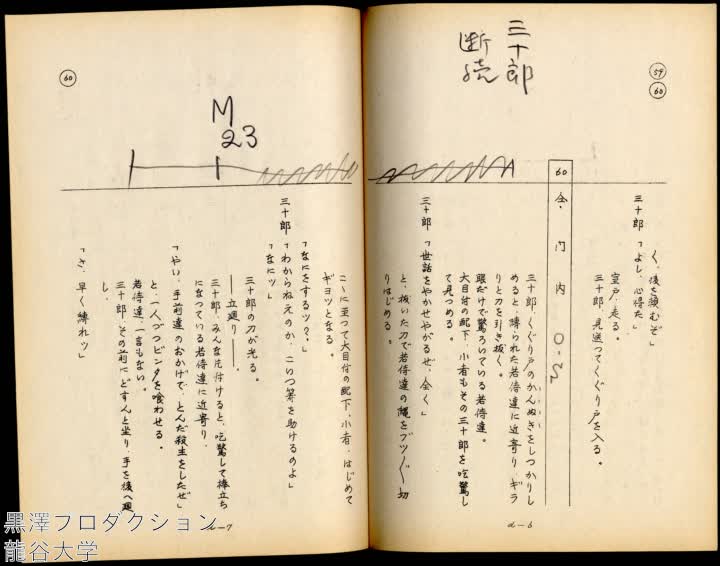 59
60
三十郎
断続
く、後を頼むぞ」
三十郎「よし、心得た」
室戸、走る。
三十郎、見送ってくぐり戸を入る。
60 仝・門内
三十郎、くぐり戸のかんぬきをしつかりし
めると、縛られた若侍達に近寄り、ギラ
リと刀を引き抜く。
眼だけで驚ろいている若侍達。
大目付の配下、小者もその三十郎を吃驚し
て見つめる。
三十郎「世話をやかせやがるぜ、全く」
と、抜いた刀で若侍達の縄をブツ〳〵切
りはじめる。
d-6
60
M
23
こゝに至つて大目付の配下、小者、はじめて
ギョツとなる。
「なにをするツ？」
三十郎「わからねえのか、こいつ等を助けるのよ」
「なにツ」
三十郎の刀が光る。
――立廻り――。
三十郎、みんな片付けると、吃驚して棒立ち
になつている若侍達に近寄り、
「やい、手前達のおかげで、とんだ殺生をしたぜ」
と、一人づつビンタを喰わせる。
若侍達、一言もない。
三十郎、その前にどすんと坐り、手を後へ廻
し、
「さ、早く縛れツ」
d-7
黒澤プロダクション
龍谷大学